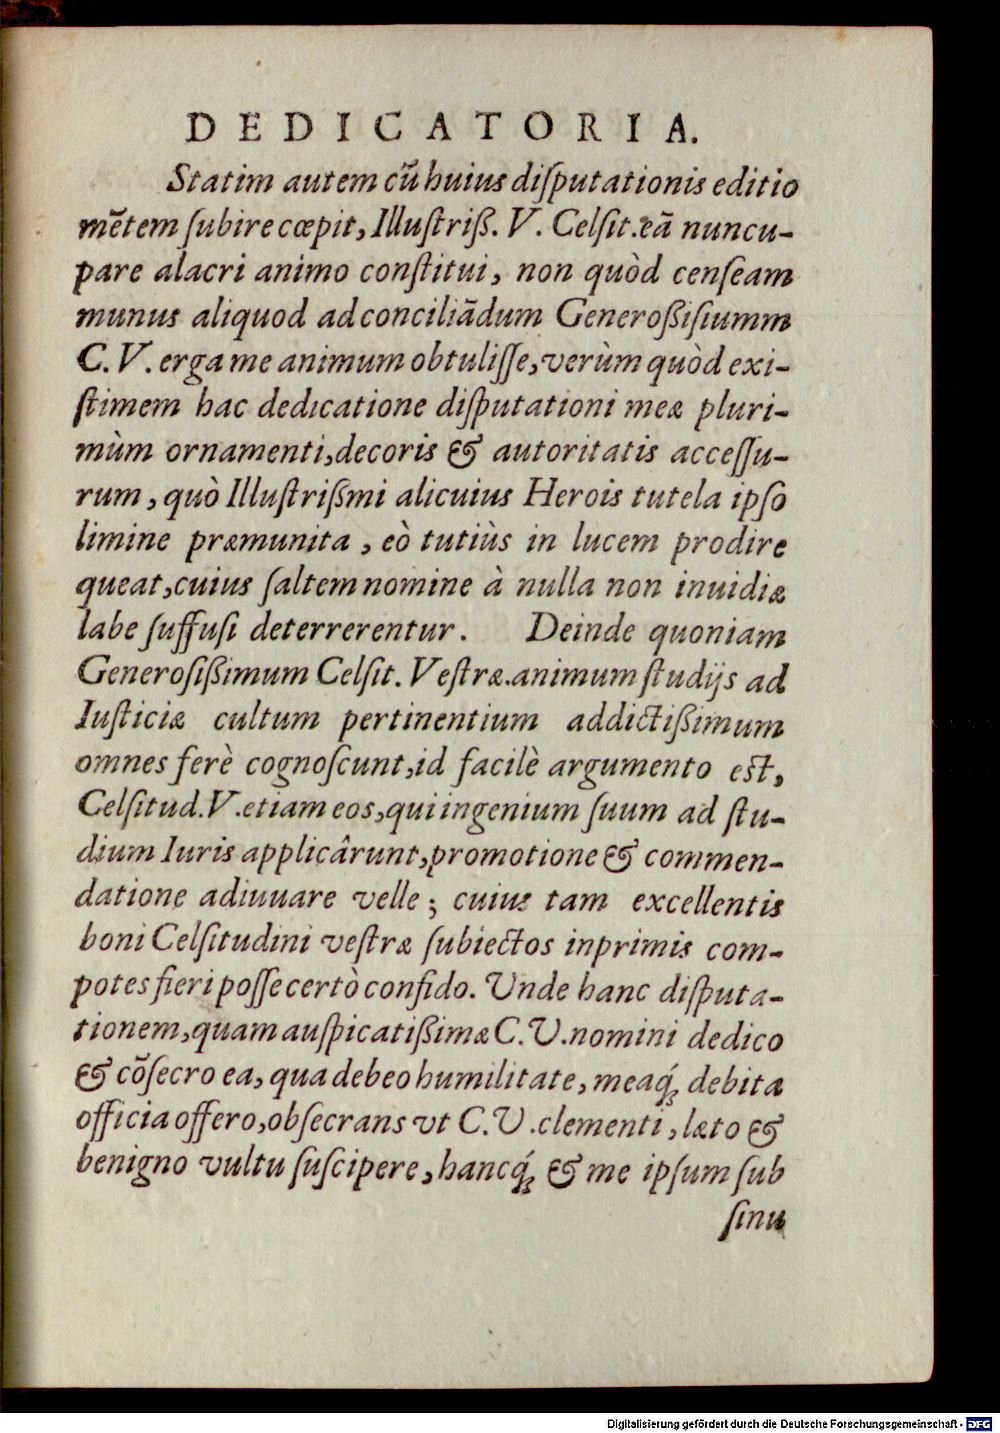 DEDICATORIA.
Statim autem cũ huius diſputationis editio
mẽtem ſubire cœpit, Illuſtriß. V. Celſit. eã nuncu-
pare alacri animo conſtitui, non quòd cenſeam
munus aliquod ad conciliãdum Generoßiſiumm
C. V. erga me animum obtuliſſe, verùm quòd exi-
ſtimem hac dedicatione diſputationi meæ pluri-
mùm ornamenti, decoris & autoritatis acceſſu-
rum, quò Illuſtrißmi alicuius Herois tutela ipſo
limine præmunita, eò tutiùs in lucem prodire
queat, cuius ſaltem nomine à nulla non inuidiæ
labe ſuffuſi deterrerentur. Deinde quoniam
Generoſißimum Celſit. Veſtræ. animum ſtudijs ad
Iuſticiæ cultum pertinentium addictißimum
omnes ferè cognoſcunt, id facilè argumento eſt,
Celſitud. V. etiam eos, qui ingenium ſuum ad ſtu-
dium Iuris applicârunt, promotione & commen-
datione adiuuare velle; cuius tam excellentis
boni Celſitudini veſtræ ſubiectos inprimis com-
potes fieri poſſe certò confido. Unde hanc diſputa-
tionem, quam auſpicatißimæ C. V. nomini dedico
& cõſecro ea, qua debeo humilitate, meaq́; debita
officia offero, obſecrans vt C. V. clementi, læto &
benigno vultu ſuſcipere, hancq́; & me ipſum ſub
ſinu
Digitalisierung gefördert durch die Deutsche Forschungsgemeinschaft - DFG